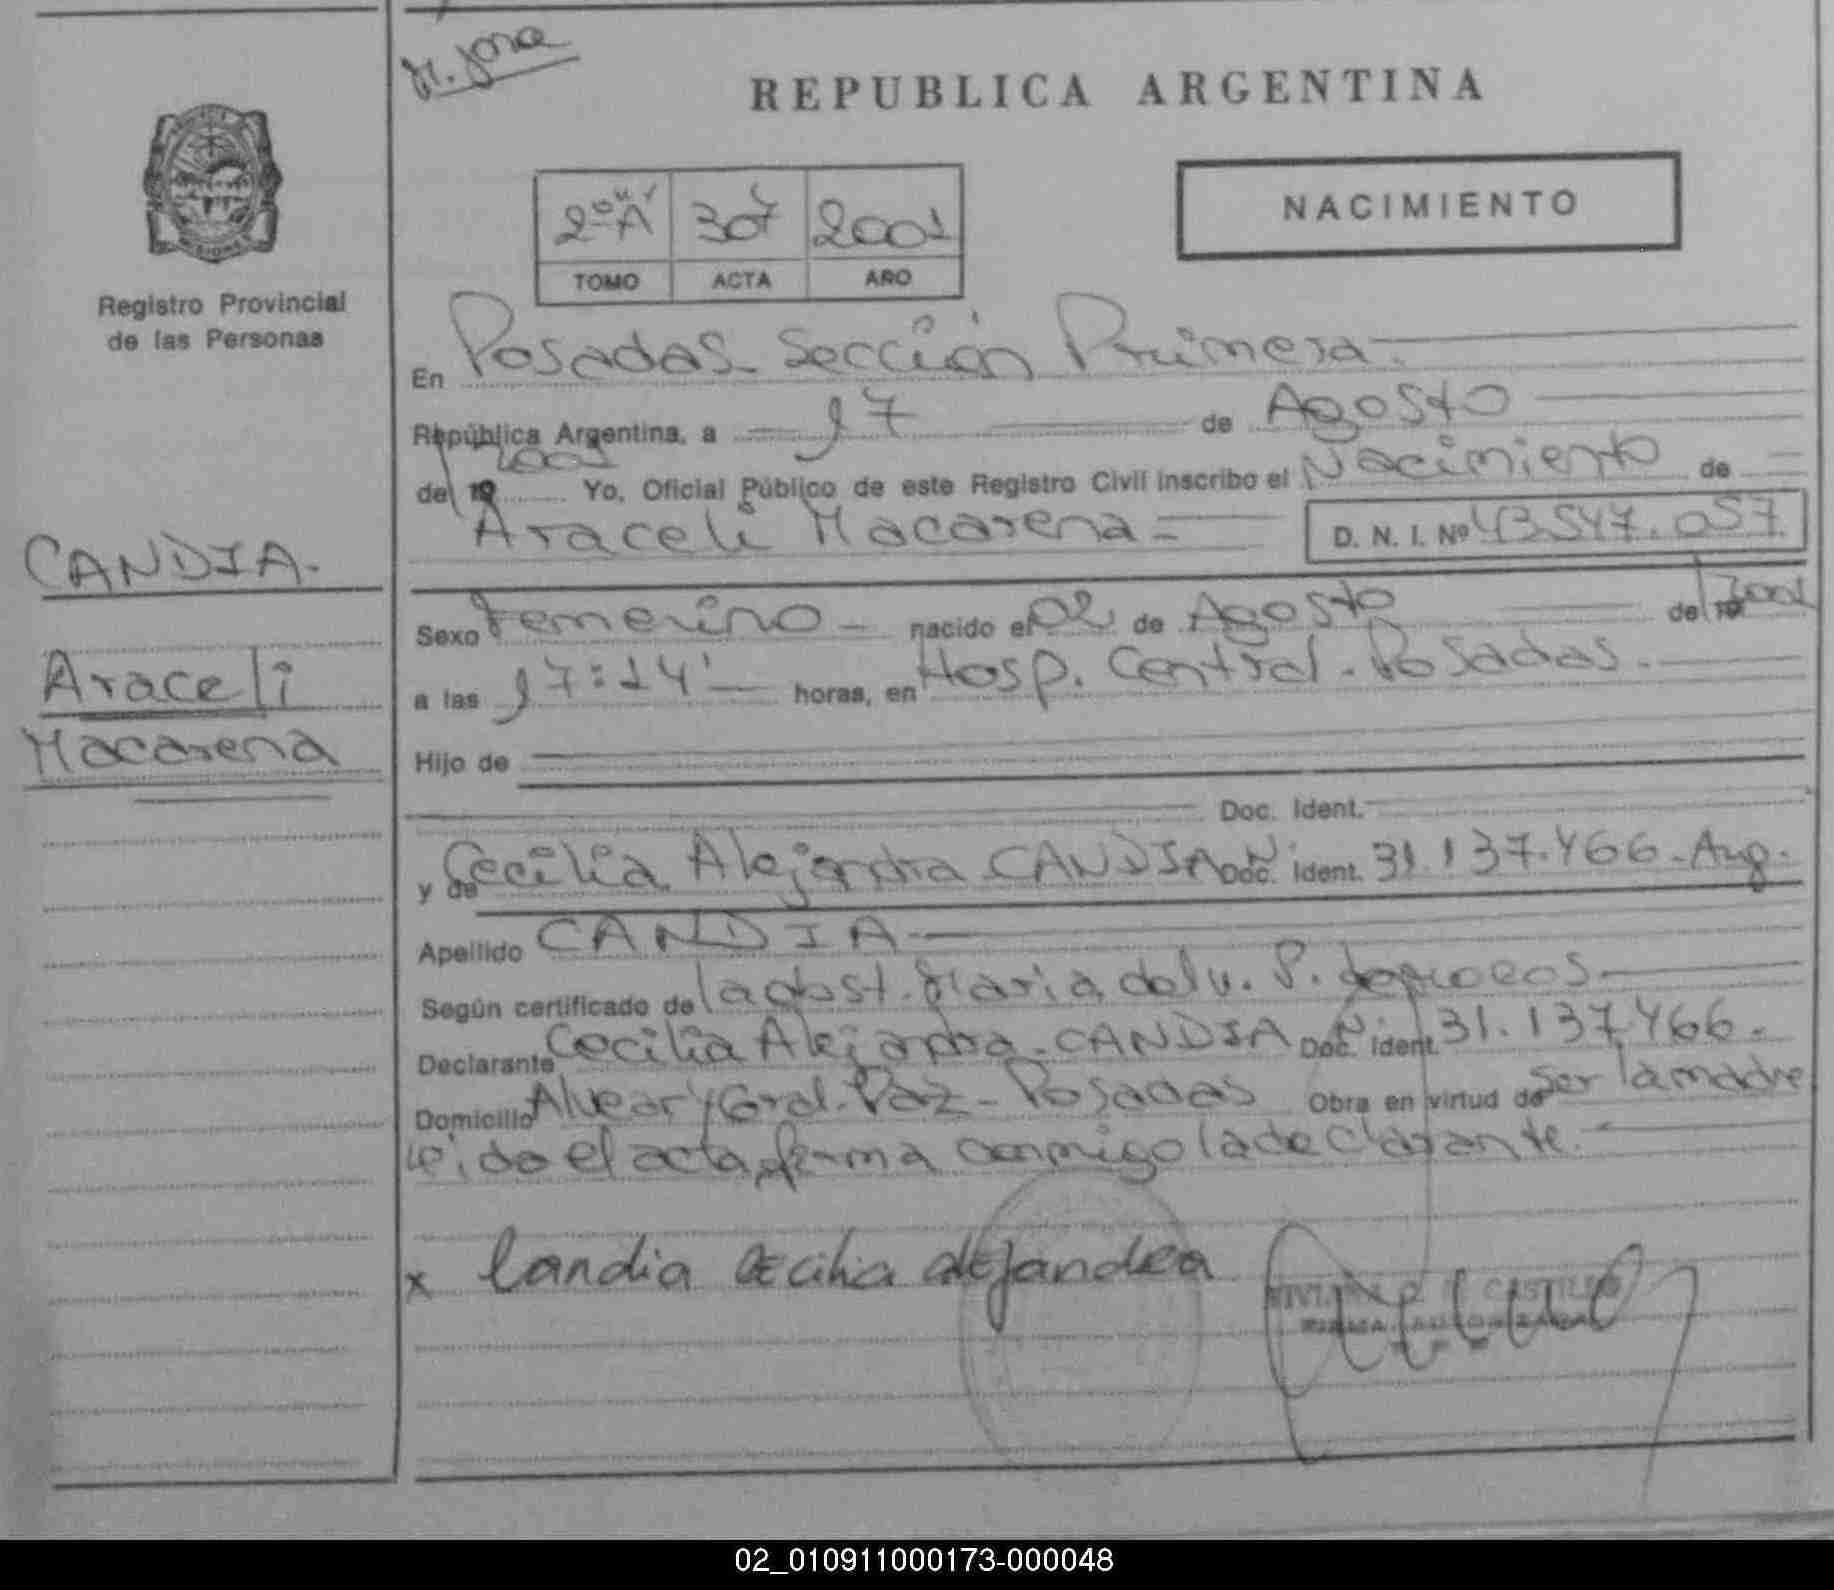 REPUBLICA ARGENTINA
2º "A" 307 2001
TOMO ACTA AÑO
NACIMIENTO
Registro Provincial
de las Personas
CANDIA.
Araceli
Macarena
En Posadas - Sección Primera.
República Argentina, a 17 de Agosto
de 19 2001 Yo, Oficial Público de este Registro Civil inscribo el Nacimiento de
Araceli Macarena = D. N. I. Nº 43547.057
Sexo Femenino - nacido el 02 de Agosto de 19 2001
a las 17:14' horas, en Hosp. Central - Posadas.
Hijo de
Doc. Ident.
y de Cecilia Alejandra CANDIA Doc. Ident. 31.137.466 - Arg.
Apellido CANDIA
Según certificado de la obst. Maria del v. P.
Declarante Cecilia Alejandra - CANDIA Doc. Ident. 31.137.466.
Domicilio Alvear y Gral. Paz - Posadas Obra en virtud de ser la madre
leido el acta, firma conmigo la declarante.
x Candia Cecilia Alejandra
CASTILLO
02_010911000173-000048